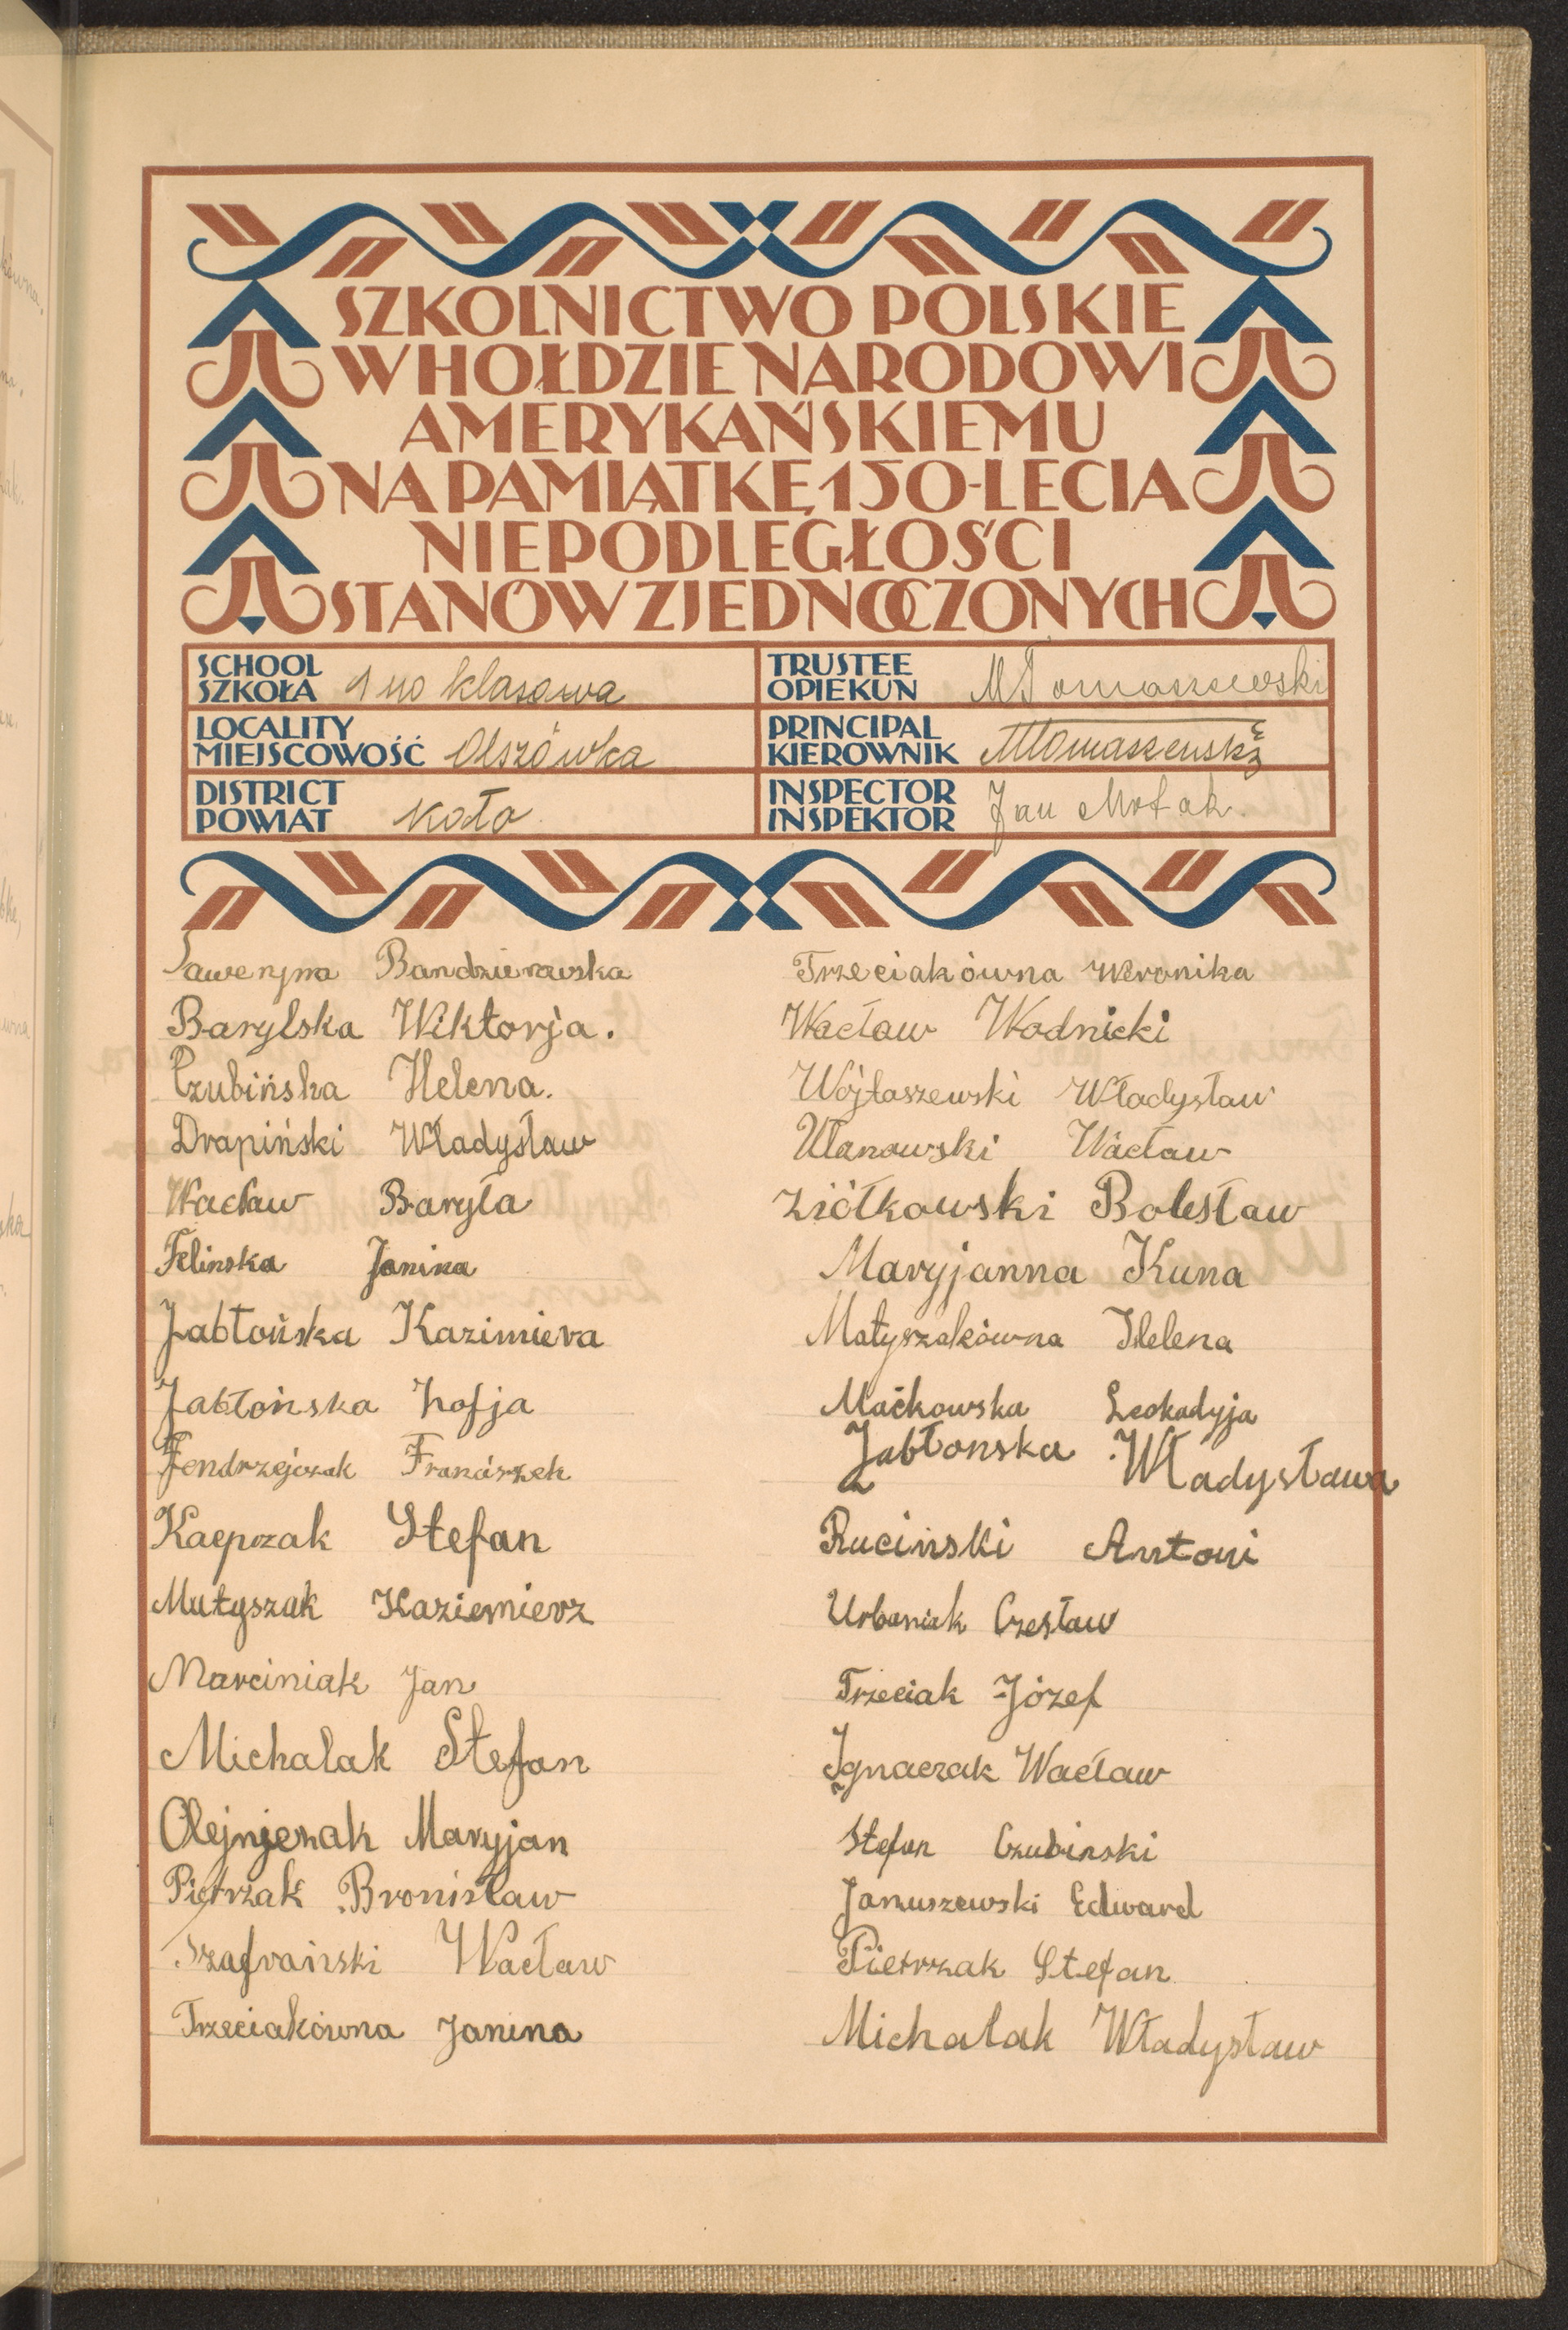 SZKOLNICTWO POLSKIE
W HOŁDZIE NARODOWI
AMERYKAŃSKIEMU
NA PAMIĄTKĘ 150-LECIA
NIEPODLEGŁOŚCI
STANÓW ZJEDNOCZONYCH
SCHOOL
SZKOŁA 1 no klasowa
TRUSTEE
OPIEKUN M Tomaszewski
LOCALITY
MIEJSCOWOŚĆ Olszówka
PRINCIPAL
KIEROWNIK MTomaszewski
DISTRICT
POWIAT Koło
INSPECTOR
INSPEKTOR Jan
Saweryna Bandzierowska
Barylska Wiktorja.
Czubińska Helena.
Drapiński Władysław
Wacław Baryła
Felinska Janina
Jabłońska Kazimiera
Jabłońska Zofja
Jendrzejczak Franciszek
Kacprzak Stefan
Matyszak Kaziemierz
Marciniak Jan
Michalak Stefan
Olejnjczak Maryjan
Pietrzak Bronisław
Szafrański Wacław
Trzeciakówna Janina
Trzeciakówna Weronika
Wacław Wodnicki
Wójtaszewski Władysław
Ulanowski Wacław
Ziółkowski Bolesław
Maryjanna Kuna
Matyszakówna Helena
Maćkowska Leokadyja
Jabłonska Władysława
Ruciński Antoni
Urbaniak Czesław
Trzeciak Józef
Ignaczak Wacław
Stefan Czubinski
Januszewski Edward
Pietrzak Stefan
Michalak Władysław